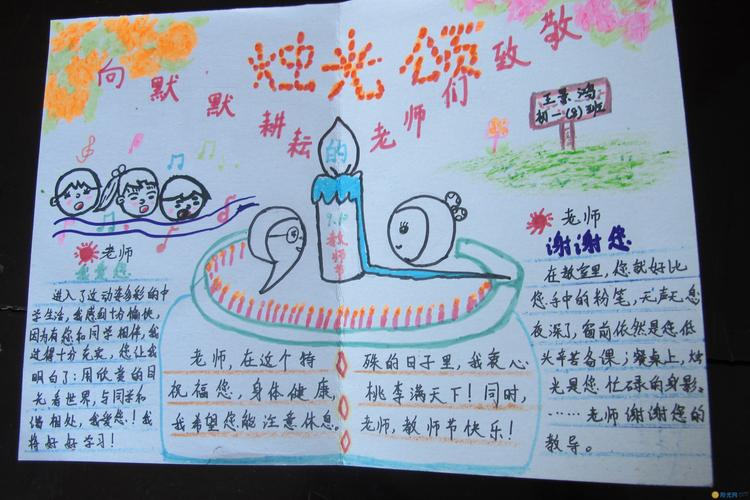 烛光颂
向默默耕耘的老师们致敬
王景鸿
树一(8)班
9.10
教师节
老师
我爱您
进入了这动姿多彩的中
学生活，我感到十分愉快，
因为有您和同学相伴，我
过得十分充实，您让我
明白了：用欣赏的目
光看世界，与同学和
谐相处，我爱您！我
将好好学习！
老师，在这个特殊的日子里，我衷心
祝福您，身体健康，桃李满天下！同时，
我希望您能注意休息。老师，教师节快乐！
老师
谢谢您
在教室里，您就好比
您手中的粉笔，无声无息
夜深了，窗前依然是您低
头辛苦备课；餐桌上，烛
光是您忙碌的身影。
……老师谢谢您的
教导。